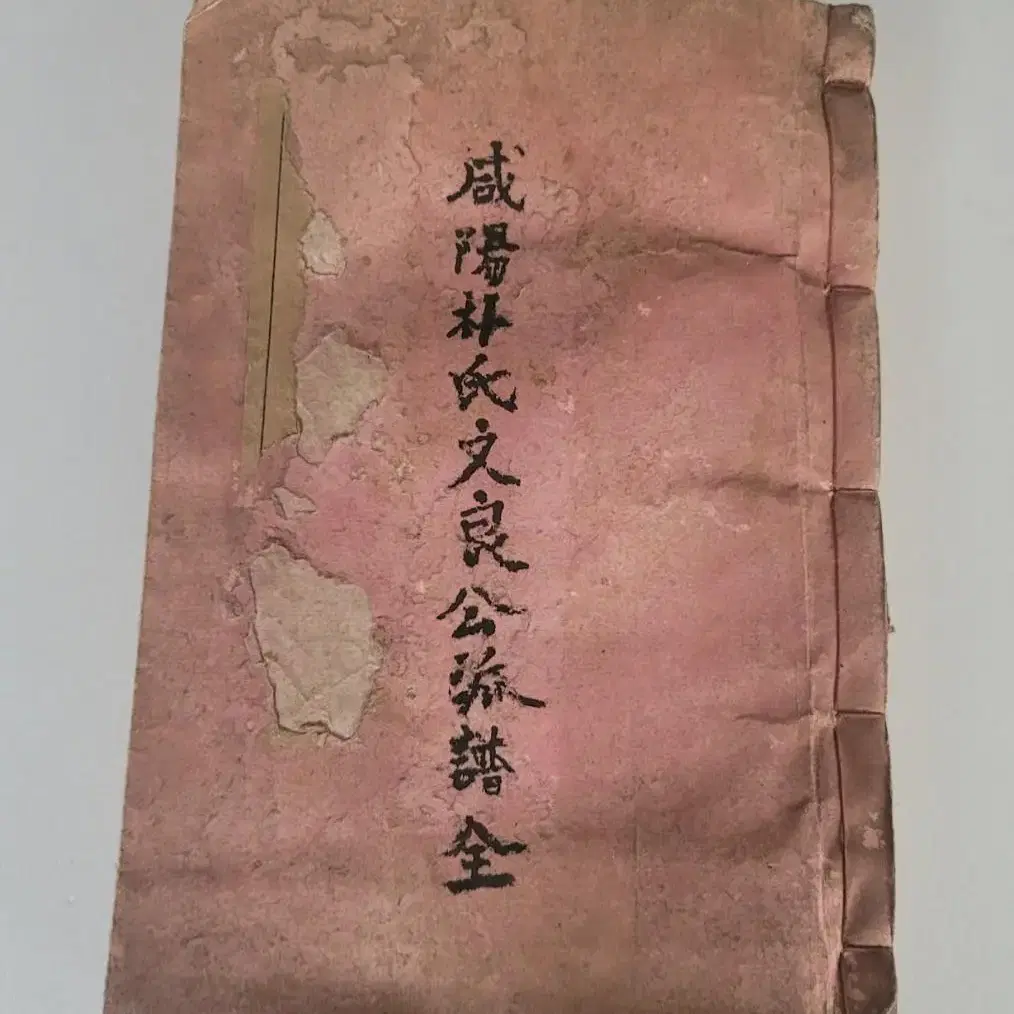 咸陽朴氏文良公派譜全